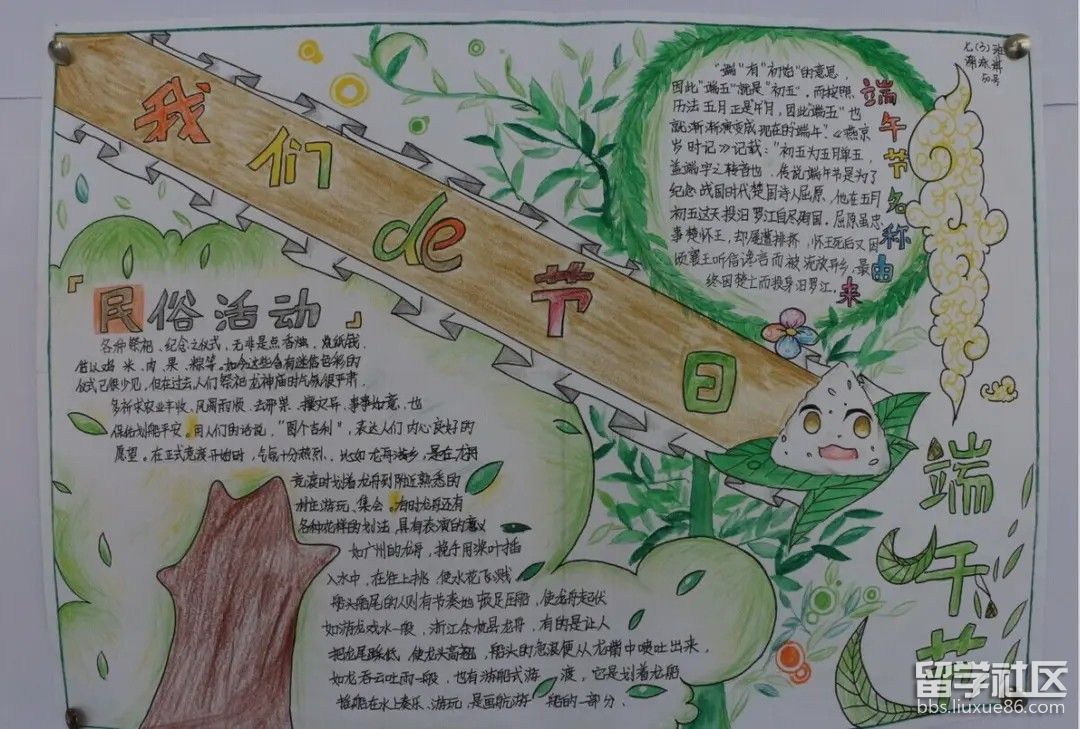 我们de节日
七(3)班
50号
端午节名称由来
"端"有"初始"的意思,
因此"端五"就是"初五"。而按照
历法五月正是午月,因此"端五"也
就渐渐演变成现在的"端午"。《燕京
岁时记》记载:"初五为五月单五,
盖端字之转音也。传说端午节是为了
纪念战国时代楚国诗人屈原,他在五月
初五这天投汨罗江自尽殉国,屈原虽忠
事楚怀王,却屡遭排挤,怀王死后又因
顷襄王听信谗言而被流放异乡,最
终因楚亡而投身汨罗江。
『民俗活动』
各种祭祀、纪念之仪式,无非是点香烛,烧纸钱,
供以鸡、米、肉、果、粽等。如今这些含有迷信色彩的
仪式已很少见,但在过去,人们祭祀龙神庙时气氛很严肃,
多祈求农业丰收、风调雨顺、去邪祟、攘灾异、事事如意,也
保佑划船平安。用人们的话说,"图个吉利",表达人们内心良好的
愿望。在正式竞渡开始时,气氛十分热烈。比如龙舟游乡,是在龙舟
竞渡时划着龙舟到附近熟悉的
村庄游玩、集会。有时龙舟还有
各种花样的划法,具有表演的意义
如广州的龙舟,挽手用桨叶插
入水中,在往上挑,使水花飞溅
船头船尾的人则有节奏地顿足压船,使龙舟起伏
如游龙戏水一般,浙江余杭县龙舟,有的是让人
把龙尾踩低,使龙头高翘,船头的急浪便从龙嘴中喷吐出来,
如龙吞云吐雨一般,也有游船式游 渡,它是划着龙船
船在水上奏乐、游玩,是画舫游 船的一部分。
端午节
留学社区
bbs.liuxue86.com